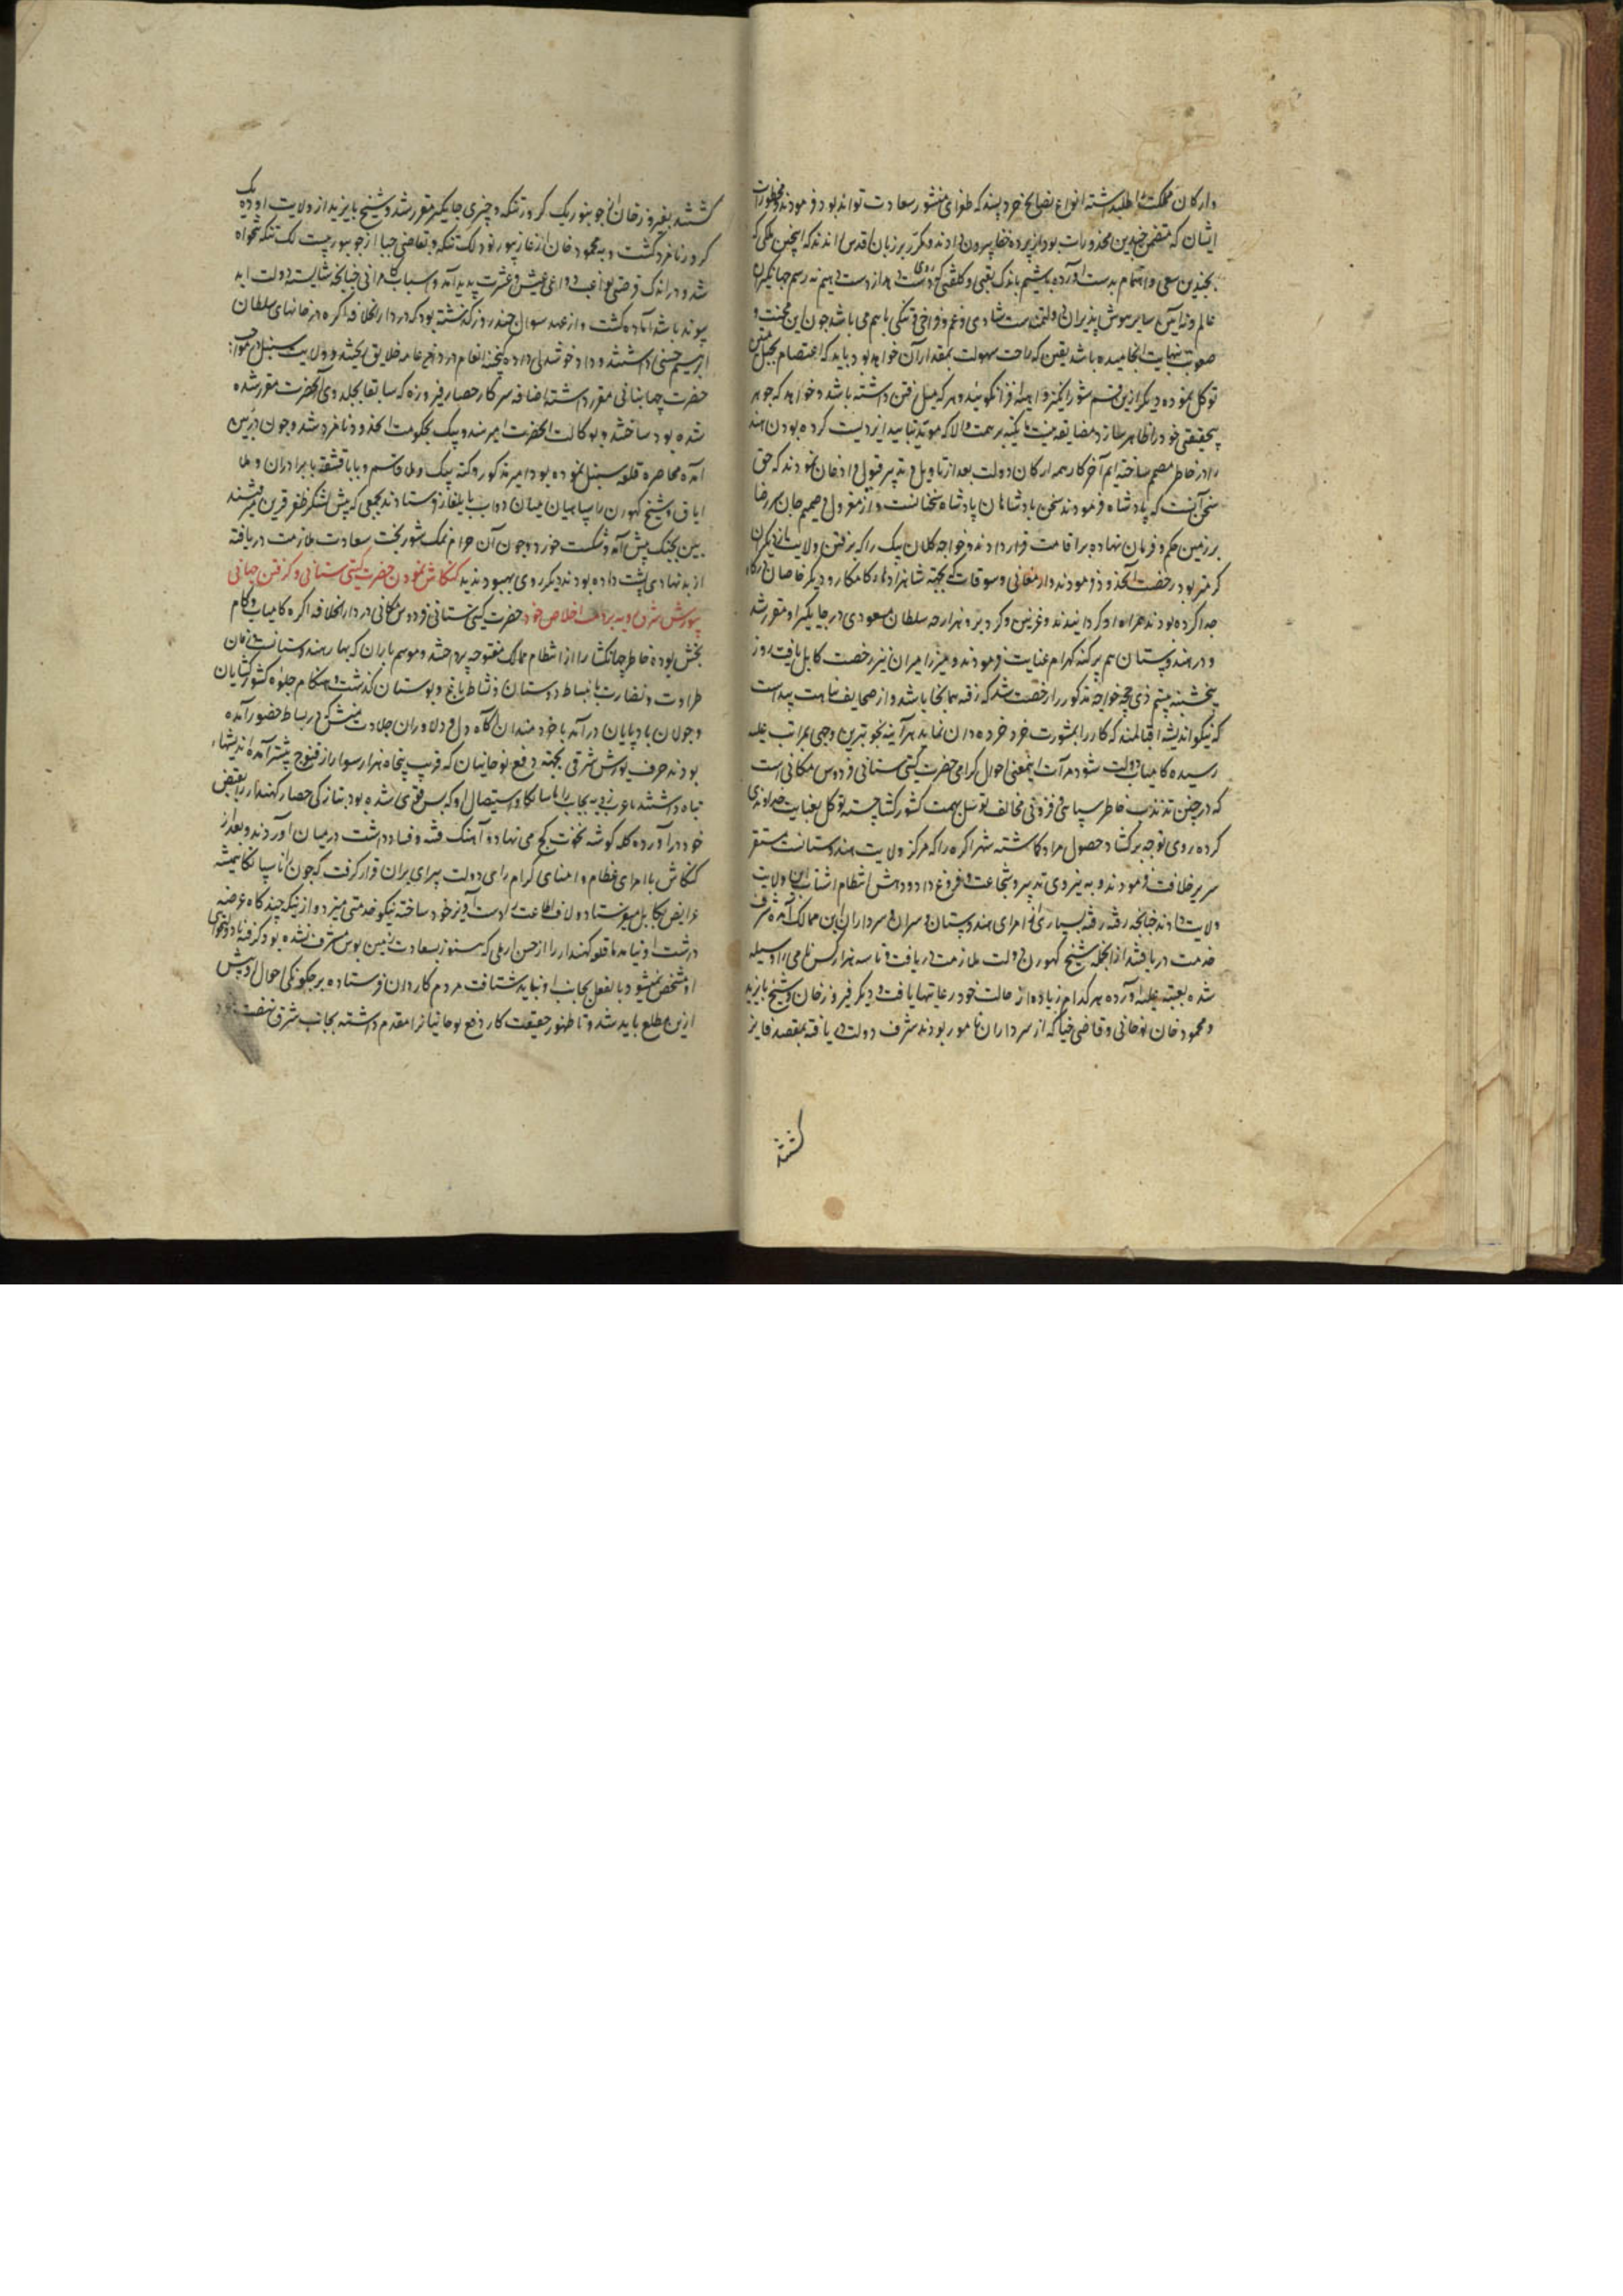 وارکان مملکت را طلبداشته انواع نصایح خرد پسند که طغرای منشور سعادت تواند بود فرمودند و محظورات
ایشان که متضمن چندین محذورات بود از پرده خفا بیرون دادند و مکرر بر زبان اقدس راندند که اینچنین ملکی که
بچندین سعی و اهتمام بدست آورده باشیم باندک تعبی و کلفتی که روی داده است از دست دهیم نه رسم جهانگیران
عالم و نه آیین سایر هوش پذیران دولتمند است شادی و غم و فراخی و تنگی باهم می باشد چون این محنت و
صعوبت بنهایت انجامیده باشد یقین که راحت و سهولت بمقدار آن خواهد بود باید که اعتصام بحبل متین
توکل نموده دیگر ازین قسم سخن شورانگیز واهمه افزا نگویند و هر که میل رفتن داشته باشد و خواهد که جوهر
بیحقیقتی خود را ظاهر سازد مضایقه نیست ما تکیه بر همت والا که موید بتایید ایزدیست کرده بودن هند
را در خاطر مصمم ساخته ایم آخر کار همه ارکان دولت بعد از تاویل و تدبیر قبول و اذعان نمودند که حق
سخن آنست که پادشاه فرمودند سخن پادشاهان پادشاه سخنانست و از مغز دل و صمیم جان سر رضا
بر زمین حکم و فرمان نهاده بر اقامت قرار دادند و خواجه کلان بیک را که برفتن ولایت از دیگران
گرمتر بود رخصت آنحدود فرمودند و ارمغانی و سوقات که بجهة شاهزادهاء کامکار و دیگر خاصان درگاه
جدا کرده بودند همراه او گردانیدند و غزنین و گردیز و هزارجه سلطان مسعودی در جایگیر او مقرر شد
و در هندوستان هم پرگنه کهرام عنایت فرمودند و میرزا میران نیز رخصت کابل یافت روز
پنجشنبه بیستم ذی حجه خواجه مذکور را رخصت شد که رفته بهانجا باشد و از صحایف نباهت پیداست
که نیکو اندیشه اقبالمند که کار را بمشورت خرد خرده دان نماید هر آینه بخوبترین وجهی بمراتب علیه
رسیده کامیاب دولت شود مرآت اینمعنی احوال گرامی حضرت گیتی ستانی فردوس مکانی است
که در چنین تذبذب خاطر سپاهی و فزونی مخالف توسل بهمت کشور کشا جسته توکل بعنایت خداوندی
کرده روی توجه بر گشاد حصول مراد گماشته شهر اگره را که مرکز ولایت هندوستانست مستقر
سریر خلافت فرمودند و به نیروی تدبیر و شجاعت و فروغ داد و دهش انتظام اشتات این ولایت
ولایت دادند چنانچه رفته رفته بسیاری از امرای هندوستان و سران و سرداران این ممالک آمده شرف
خدمت دریافتند از انجمله شیخ کهورن دولت ملازمت دریافت و تا سه هزار کس نامی را وسیله
شده بعتبه علیه آورده هر کدام زیاده از حالت خود رعایتها یافت و دیگر فیروز خان و شیخ بایزید
و محمود خان نوحانی و قاضی جیا که از سرداران نامور بودند شرف دولت دریافته بمقصد فایز
گشتند
گشتند بفیروز خان از جونپور یک کرور تنکه و چیزی جایگیر مقرر شد و شیخ بایزید از ولایت اوده یک
کرور نامزد گشت و به محمود خان از غازیپور نود لک تنکه و بقاضی جیا از جونپور بیست لک تنکه تنخواه
شد و در اندک فرصتی نواعب دواعی عیش و عشرت پدید آمد و اسباب کامرانی چنانچه شایسته دولت ابد
پیوند باشد آماده گشت و از عید شوال چند روز گذشته بود که در دارالخلافه اگره در خانهای سلطان
ابراهیم جشنی داشتند و داد خوشدلی داده گنجینه انعام در دامن عامه خلایق ریختند و ولایت سنبل در مواجب
حضرت جهانبانی مقرر داشته اضافه سرکار حصار فیروزه که سابقا بجلدوی آنحضرت مقرر شده
شده بود ساختند و بوکالت آنحضرت امیر هندو بیک بحکومت آنحدود نامزد شد و چون درین
آمده محاصره قلعه سنبل نموده بود امیر مذکور و کته بیک و ملا قاسم و بابا قشقه با برادران و ملا
ایاق و شیخ کهورن را با سپاهیان میان دوآب بایلغار فرستادند بجمعی که پیش لشکر ظفر قرین میرفتند
بین بجنگ پیش آمد و شکست خورد و چون آن حرام نمک شور بخت سعادت ملازمت دریافته
از بد نهادی پشت داده بودند دیگر روی بهبود ندید کنگاش نمودن حضرت گیتی ستانی و گرفتن جهانبانی
یورش شرق رویه بر ذمت اخلاص خود حضرت گیتی ستانی فردوس مکانی در دارالخلافه اگره کامیاب و کام
بخش بوده خاطر جهانگشا را از انتظام ممالک مفتوحه پرداختند و موسم باران که بهار هندوستانست زمان
طراوت و نضارت و انبساط دوستان و نشاط باغ و بوستان گذشت و هنگام جلوه کشورگشایان
و جولان بادپایان در آمد با خردمندان آگاه دل و دلاوران جلادت منش که در بساط حضور آمده
بودند حرف یورش شرقی بجهة دفع نوحانیان که قریب پنجاه هزار سوار از قنوج پیشتر آمده اندیشهاء
تباه داشتند یا غربی به جانب رانا سانکا و استیصال او که بس قوی شده بود بتازگی حصار کهندار را بقبض
خود درآورده کله گوشه نخوت کج می نهاد و آهنگ فتنه و فساد داشت در میان آوردند و بعد از
کنگاش با امرای عظام و امنای کرام رای دولت پیرای بران قرار گرفت که چون رانا سانکا همیشه
عرایض بکابل میفرستاد و لاف اطاعت را دست آویز خود ساخته نیکو خدمتی میزد و از نیکه چندگاه عرضه
درشت او نیامد تا قلعه کهندار را از حسن ارملی که هنوز بسعادت زمین بوس مشرف نشده بود گرفته نادولتخواهی
او مشخص نمیشود بالفعل بجانب او نباید شتافت مردم کاردان فرستاده بر چگونگی احوال او پیش
ازین مطلع باید شد و تا ظهور حقیقت کار دفع نوحانیانرا مقدم داشته بجانب شرق نهضت نمود